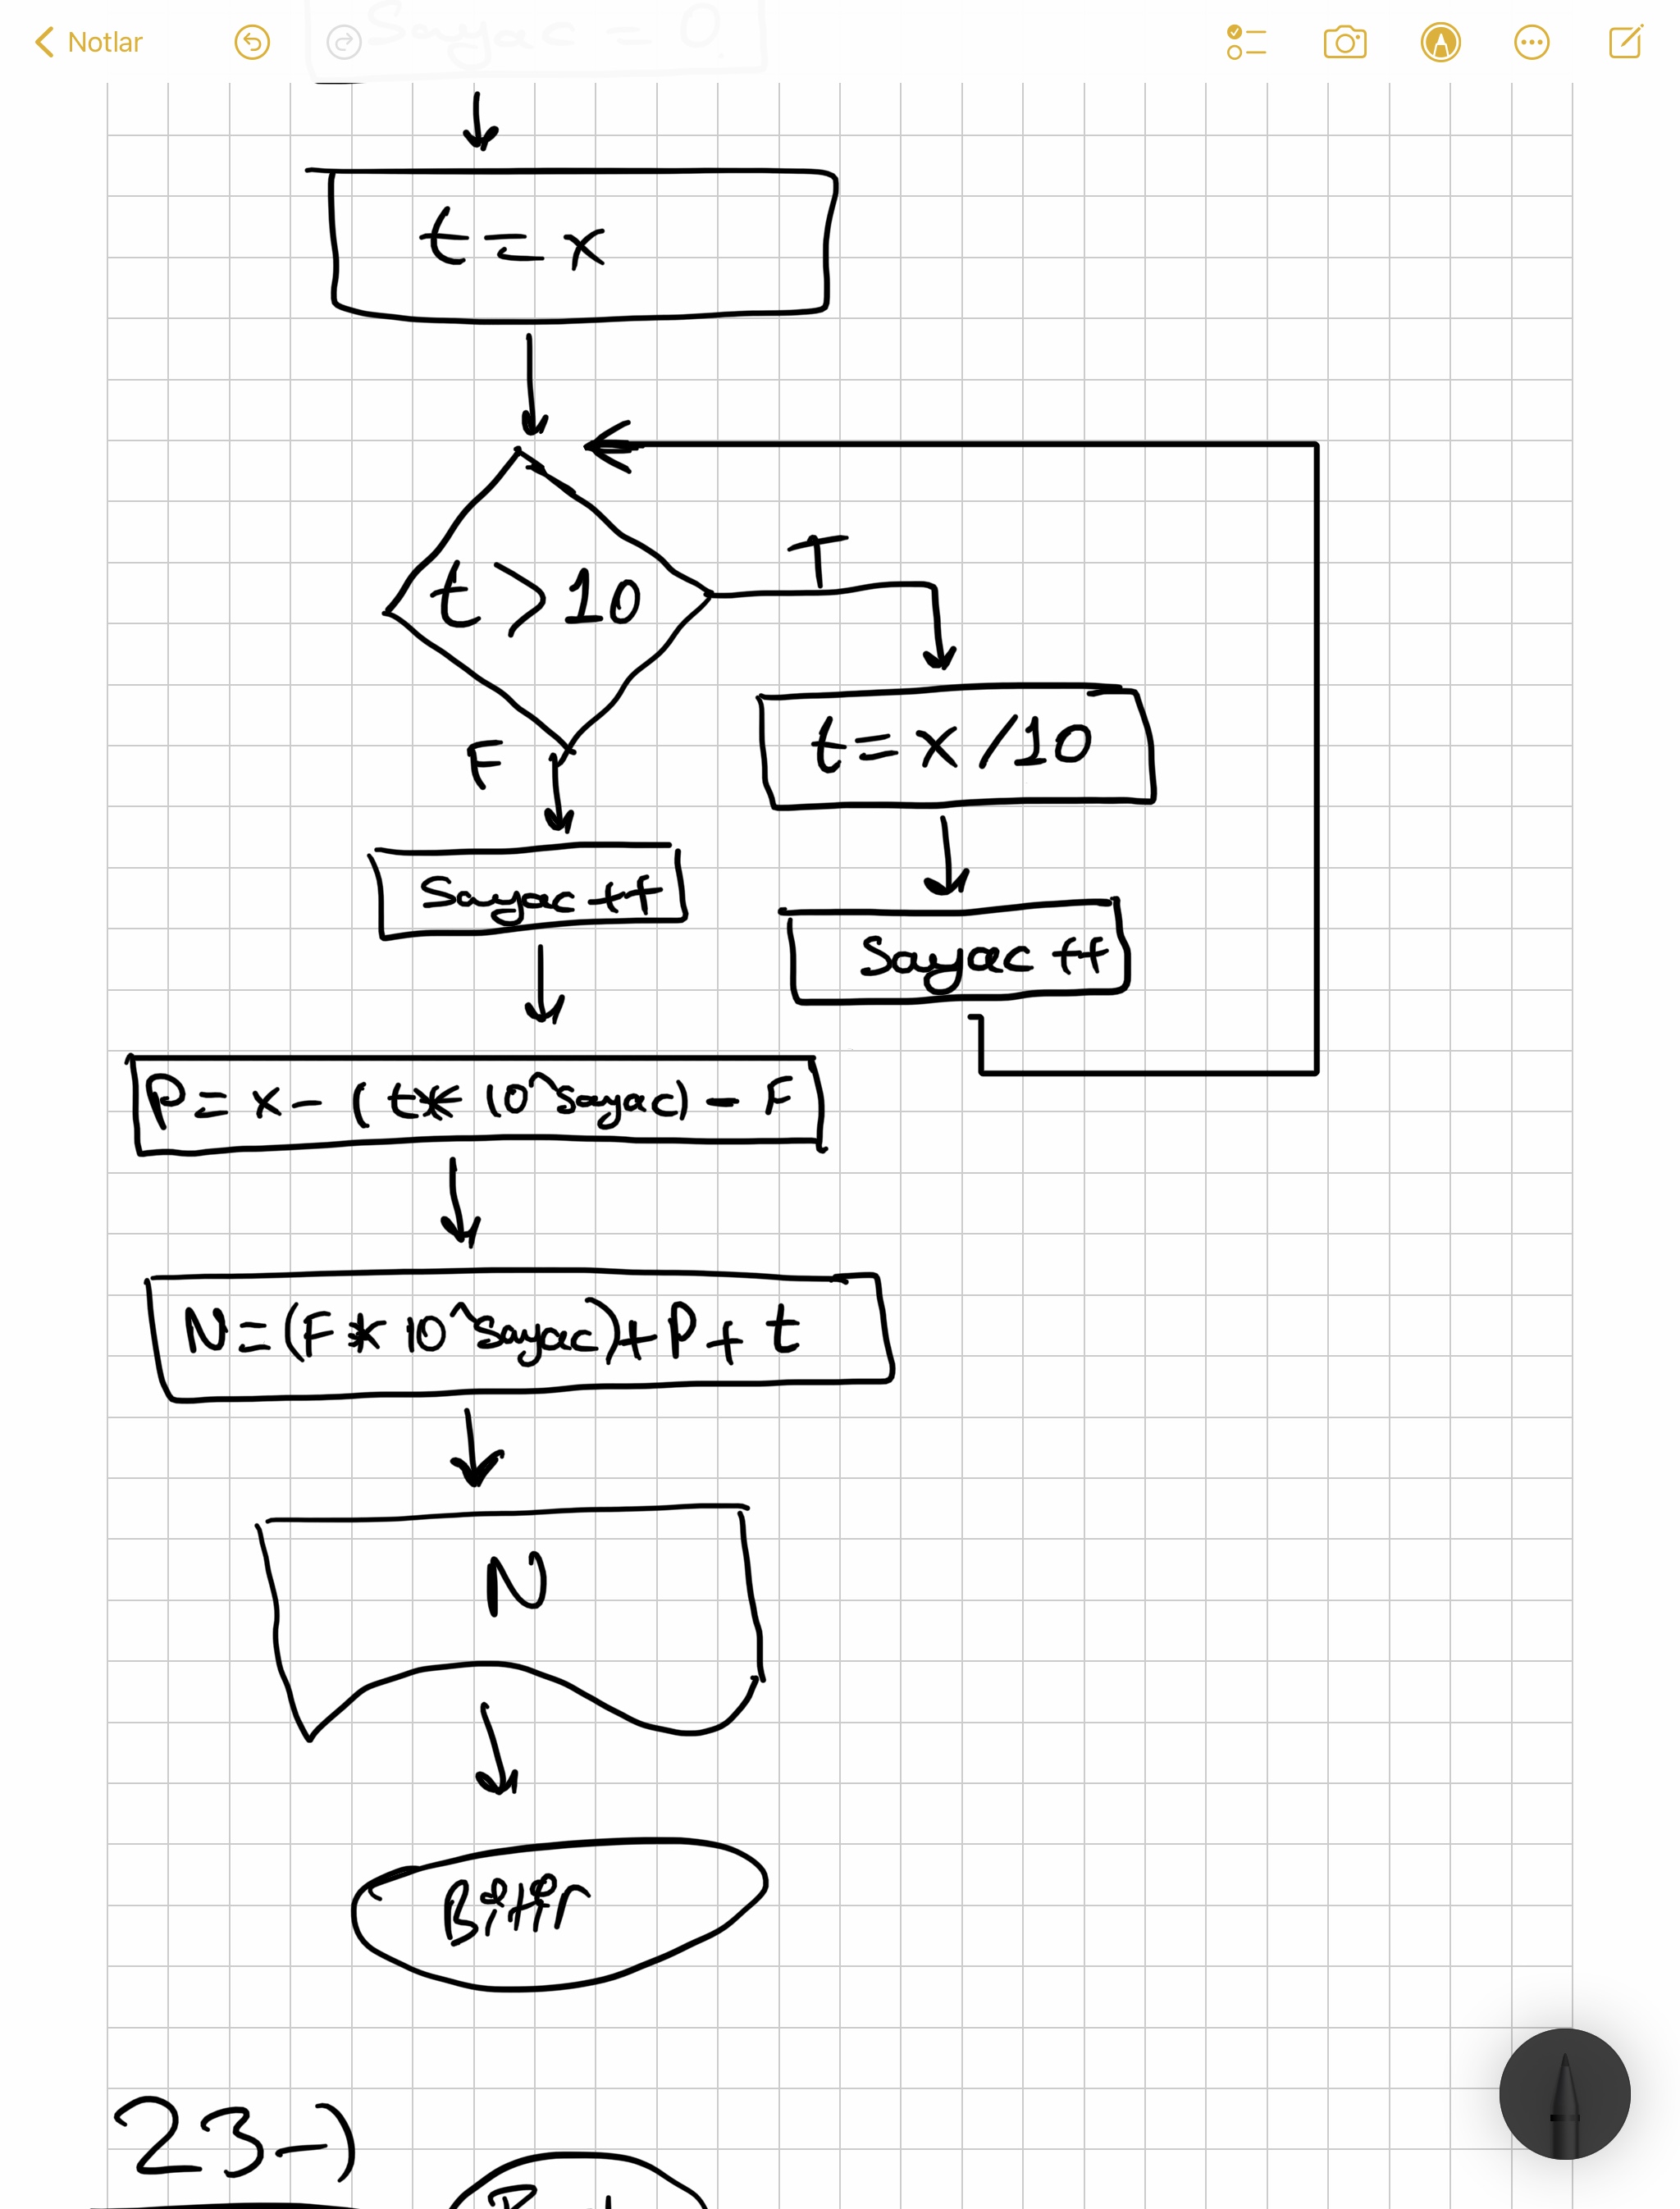 Notlar
Sayac = 0
t = x
t > 10
T
t = x / 10
F
Sayac ++
Sayac ++
P = x - ( t * 10^sayac) - F
N = (F * 10^sayac) + P + t
N
Bitir
23-)